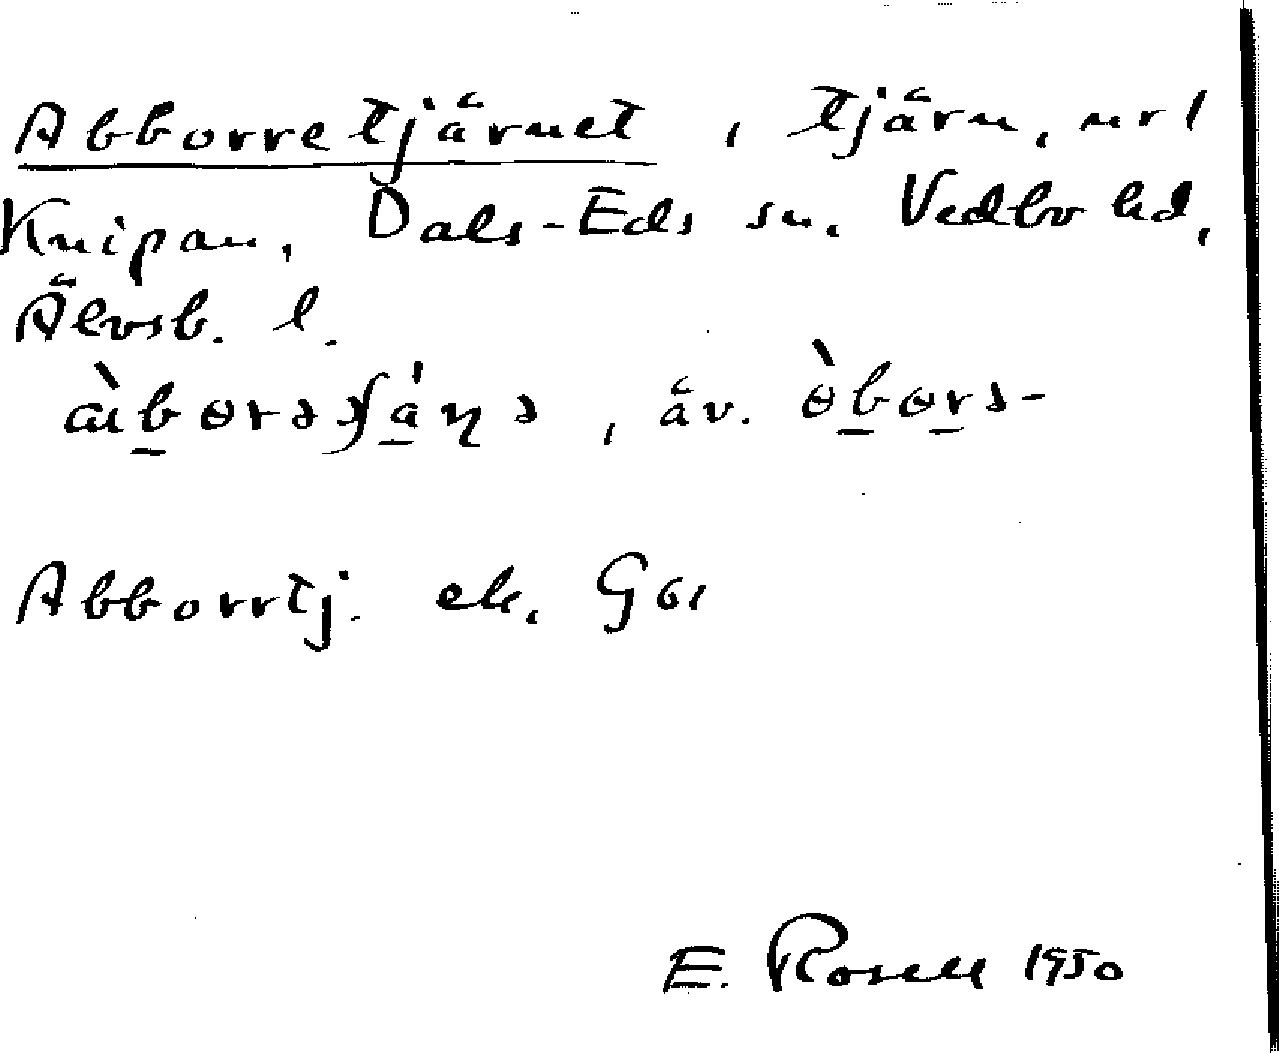 Abborretjärnet, tjärn, nr 1
Knipan, Dals-Eds sn. Vedbo hd,
Älvsb. l.
àbɵrəʃä́ɳə, äv. ɵ̀bɵrə-
Abborrtj. ek. G61
E. Rosell 1950